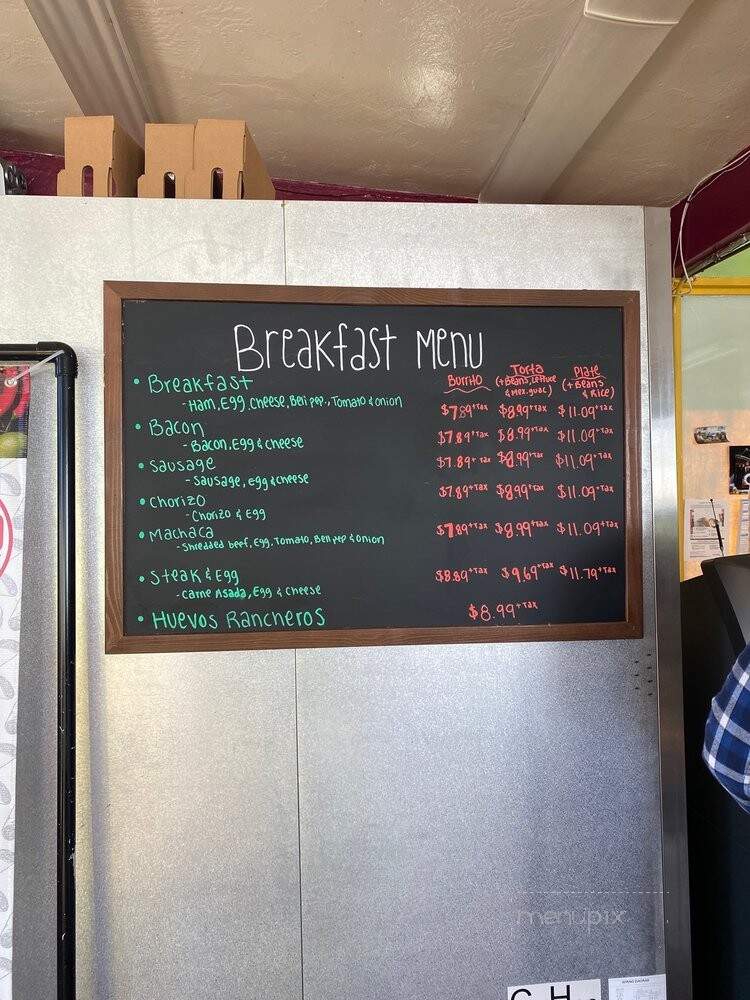 Breakfast Menu
Burrito
Torta
(+Beans, Lettuce
& Mex. guac)
Plate
(+Beans
& Rice)
• Breakfast
- Ham, Egg, Cheese, Bell pep., Tomato & onion
$7.89+Tax $8.99+Tax $11.09+Tax
• Bacon
- Bacon, Egg & Cheese
$7.89+Tax $8.99+Tax $11.09+Tax
• Sausage
- Sausage, Egg & Cheese
$7.89+Tax $8.99+Tax $11.09+Tax
• Chorizo
- Chorizo & Egg
$7.89+Tax $8.99+Tax $11.09+Tax
• Machaca
- Shredded beef, Egg, Tomato, Bell pep & onion
$7.89+Tax $8.99+Tax $11.09+Tax
• Steak & Egg
- Carne Asada, Egg & Cheese
$8.89+Tax $9.69+Tax $11.79+Tax
• Huevos Rancheros
$8.99+Tax
menupix